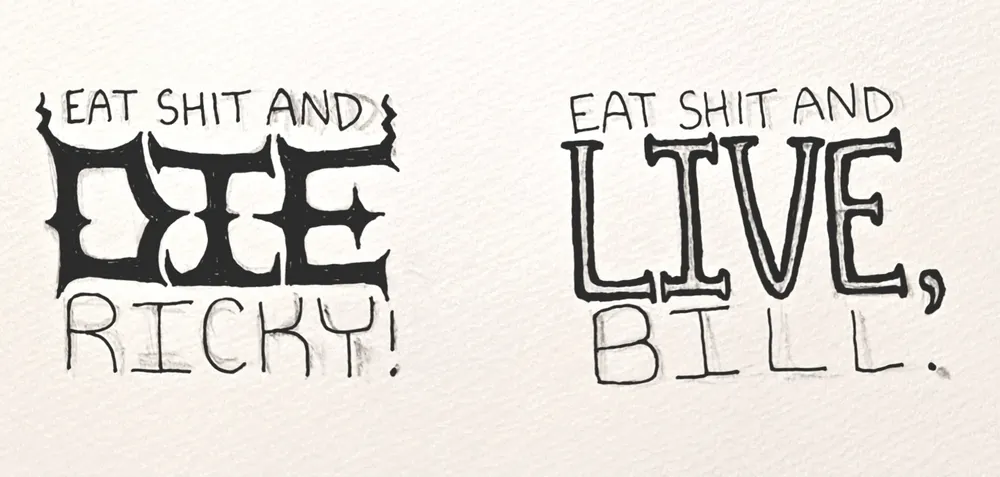 EAT SHIT AND
DIE
RICKY!
EAT SHIT AND
LIVE,
BILL.